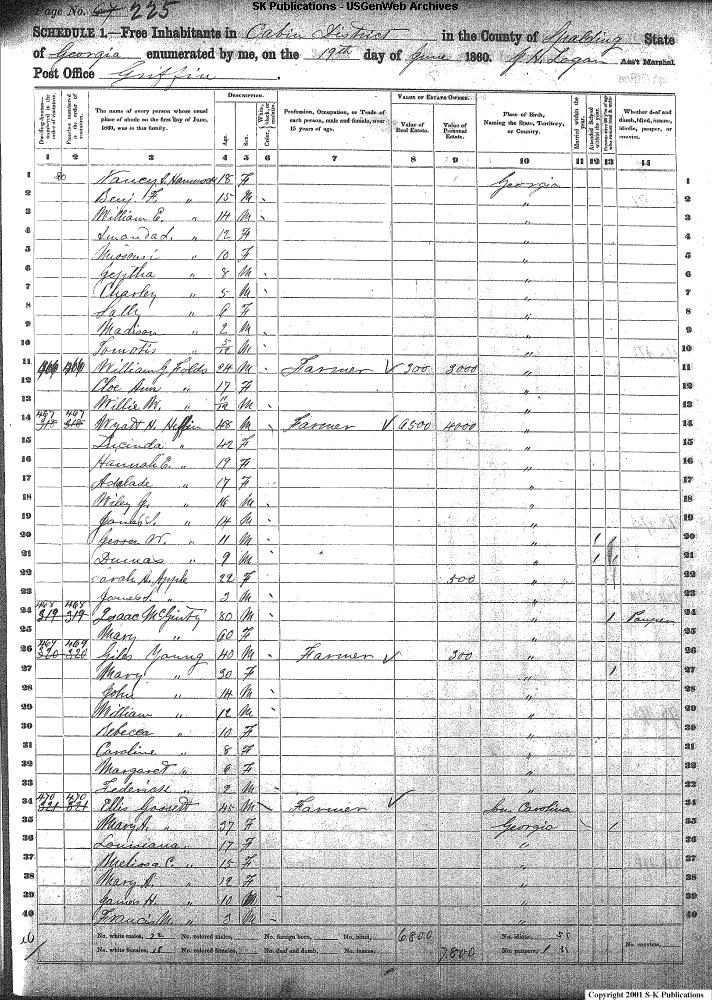 SK Publications - USGenWeb Archives
Page No. 67 225
SCHEDULE 1.—Free Inhabitants in Cabin District in the County of Spalding State
of Georgia enumerated by me, on the 19th day of June 1860. J. H. Logan Ass't Marshal.
Post Office Griffin
DESCRIPTION. VALUE OF ESTATE OWNED.
The name of every person whose usual place of abode on the first day of June, 1860, was in this family.
Age. Sex. Color,
Profession, Occupation, or Trade of each person, male and female, over 15 years of age.
Value of Real Estate. Value of Personal Estate.
Place of Birth, Naming the State, Territory, or Country.
Married within the year. Attended School within the year.
Whether deaf and dumb, blind, insane, idiotic, pauper, or convict.
1 2 3 4 5 6 7 8 9 10 11 12 13 14
1 Nancy S. Hammock 18 F Georgia 1
2 Benj. F. " 15 M " 2
3 William E. " 14 M " 3
4 Amanda L. " 12 F " 4
5 Missouri " 10 F " 5
6 " 8 M " 6
7 Charley " 5 M " 7
8 Sally " 6 F " 8
9 Madison " 2 M " 9
10 " 5/12 M " 10
11 466 466 William G. Folds 24 M Farmer 300 3000 " 11
12 Cloe Ann " 17 F " 12
13 Willie M. " 11/12 M " 13
14 467 467 318 318 Wyatt H. Heflin 48 M Farmer 9500 4000 " 14
15 Lucinda " 42 F " 15
16 Hannah E. " 19 F " 16
17 Adalade " 17 F " 17
18 Wiley G. " 16 M " 18
19 James S. " 14 M " 19
20 W. " 11 M " 1 20
21 Dumas " 9 M " 1 1 21
22 Sarah A. Apple 22 F 500 " 22
23 James " 3 M " 23
24 468 468 319 319 Isaac McGinty 80 M " 1 Pauper 24
25 Mary " 60 F " 25
26 469 469 320 320 Giles Young 40 M Farmer 300 " 26
27 Mary " 30 F " 1 27
28 John " 14 M " 28
29 William " 12 M " 29
30 Rebecca " 10 F " 30
31 Caroline " 8 F " 31
32 Margaret " 6 F " 32
33 Federick " 2 M " 33
34 470 470 321 321 Ellis Gossett 45 M Farmer Sou Carolina 34
35 Mary A. " 37 F Georgia 1 35
36 Louisiana " 17 F " 36
37 Melissa C. " 15 F " 37
38 Mary A. " 12 F " 38
39 James H. " 10 M " 39
40 Francis M. " 3 M " 40
No. white males, 22 No. colored males, No. foreign born, No. blind, 6800 No. idiotic,
No. white females, 18 No. colored females, No. deaf and dumb, No. insane, 7800 No. paupers, 1 No. convicts,
Copyright 2001 S-K Publications